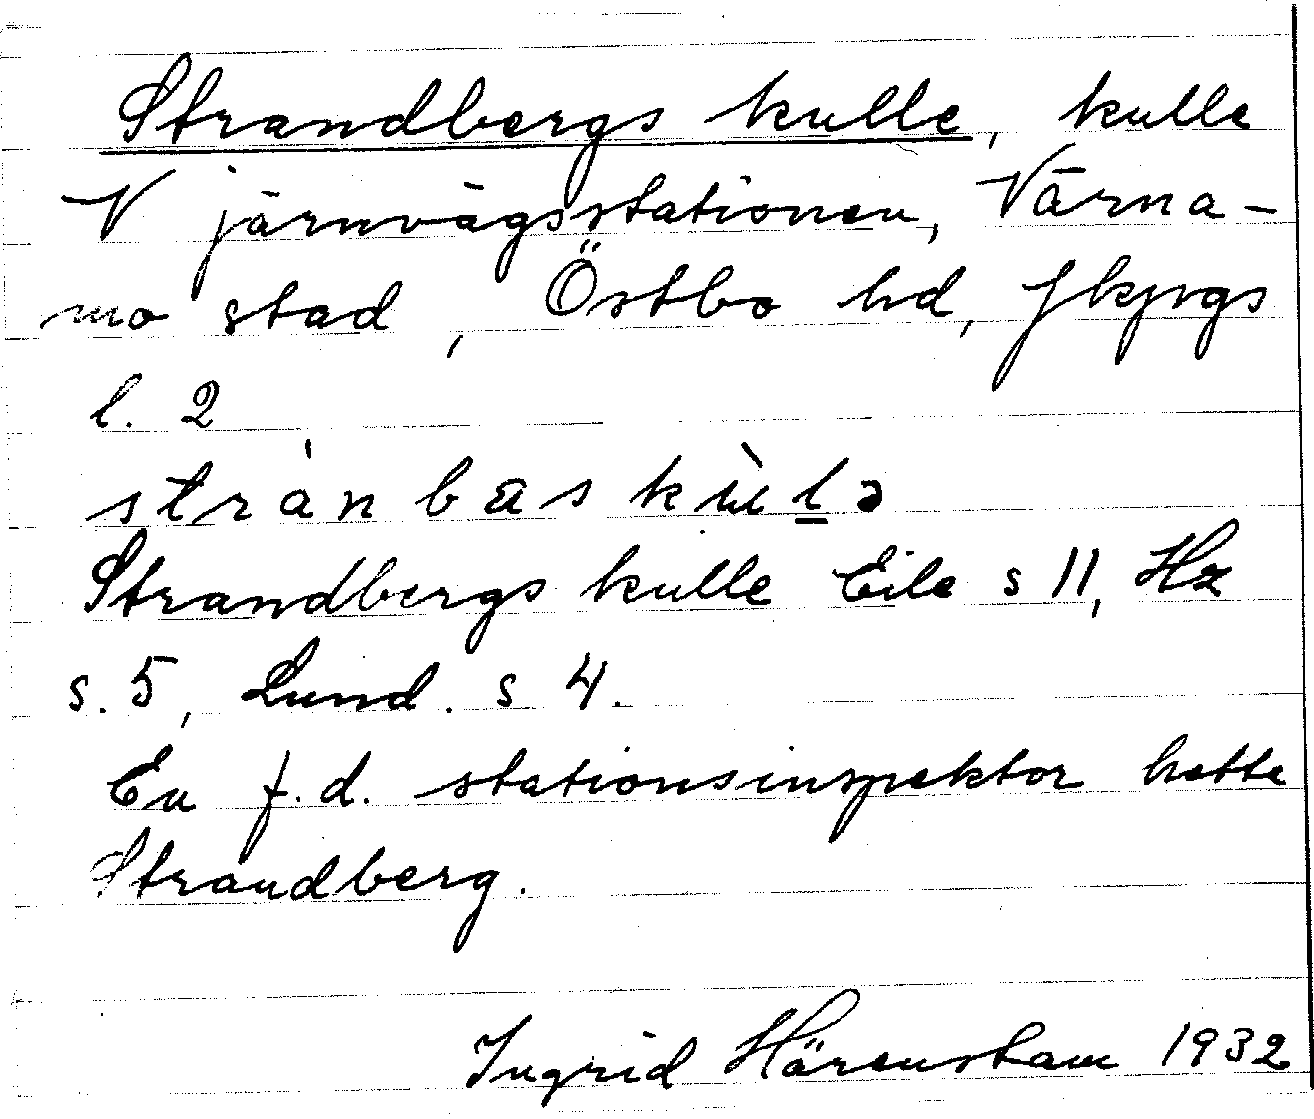 Strandbergs kulle, kulle
V järnvägsstationen, Värna-
mo stad, Östbo hd, Jkpgs
l. 2
strànbaskùlə
Strandbergs kulle Eile s 11, Hz
s. 5, Lund. s 4.
En f.d. stationsinspektor hette
Strandberg.
Ingrid Härenstam 1932